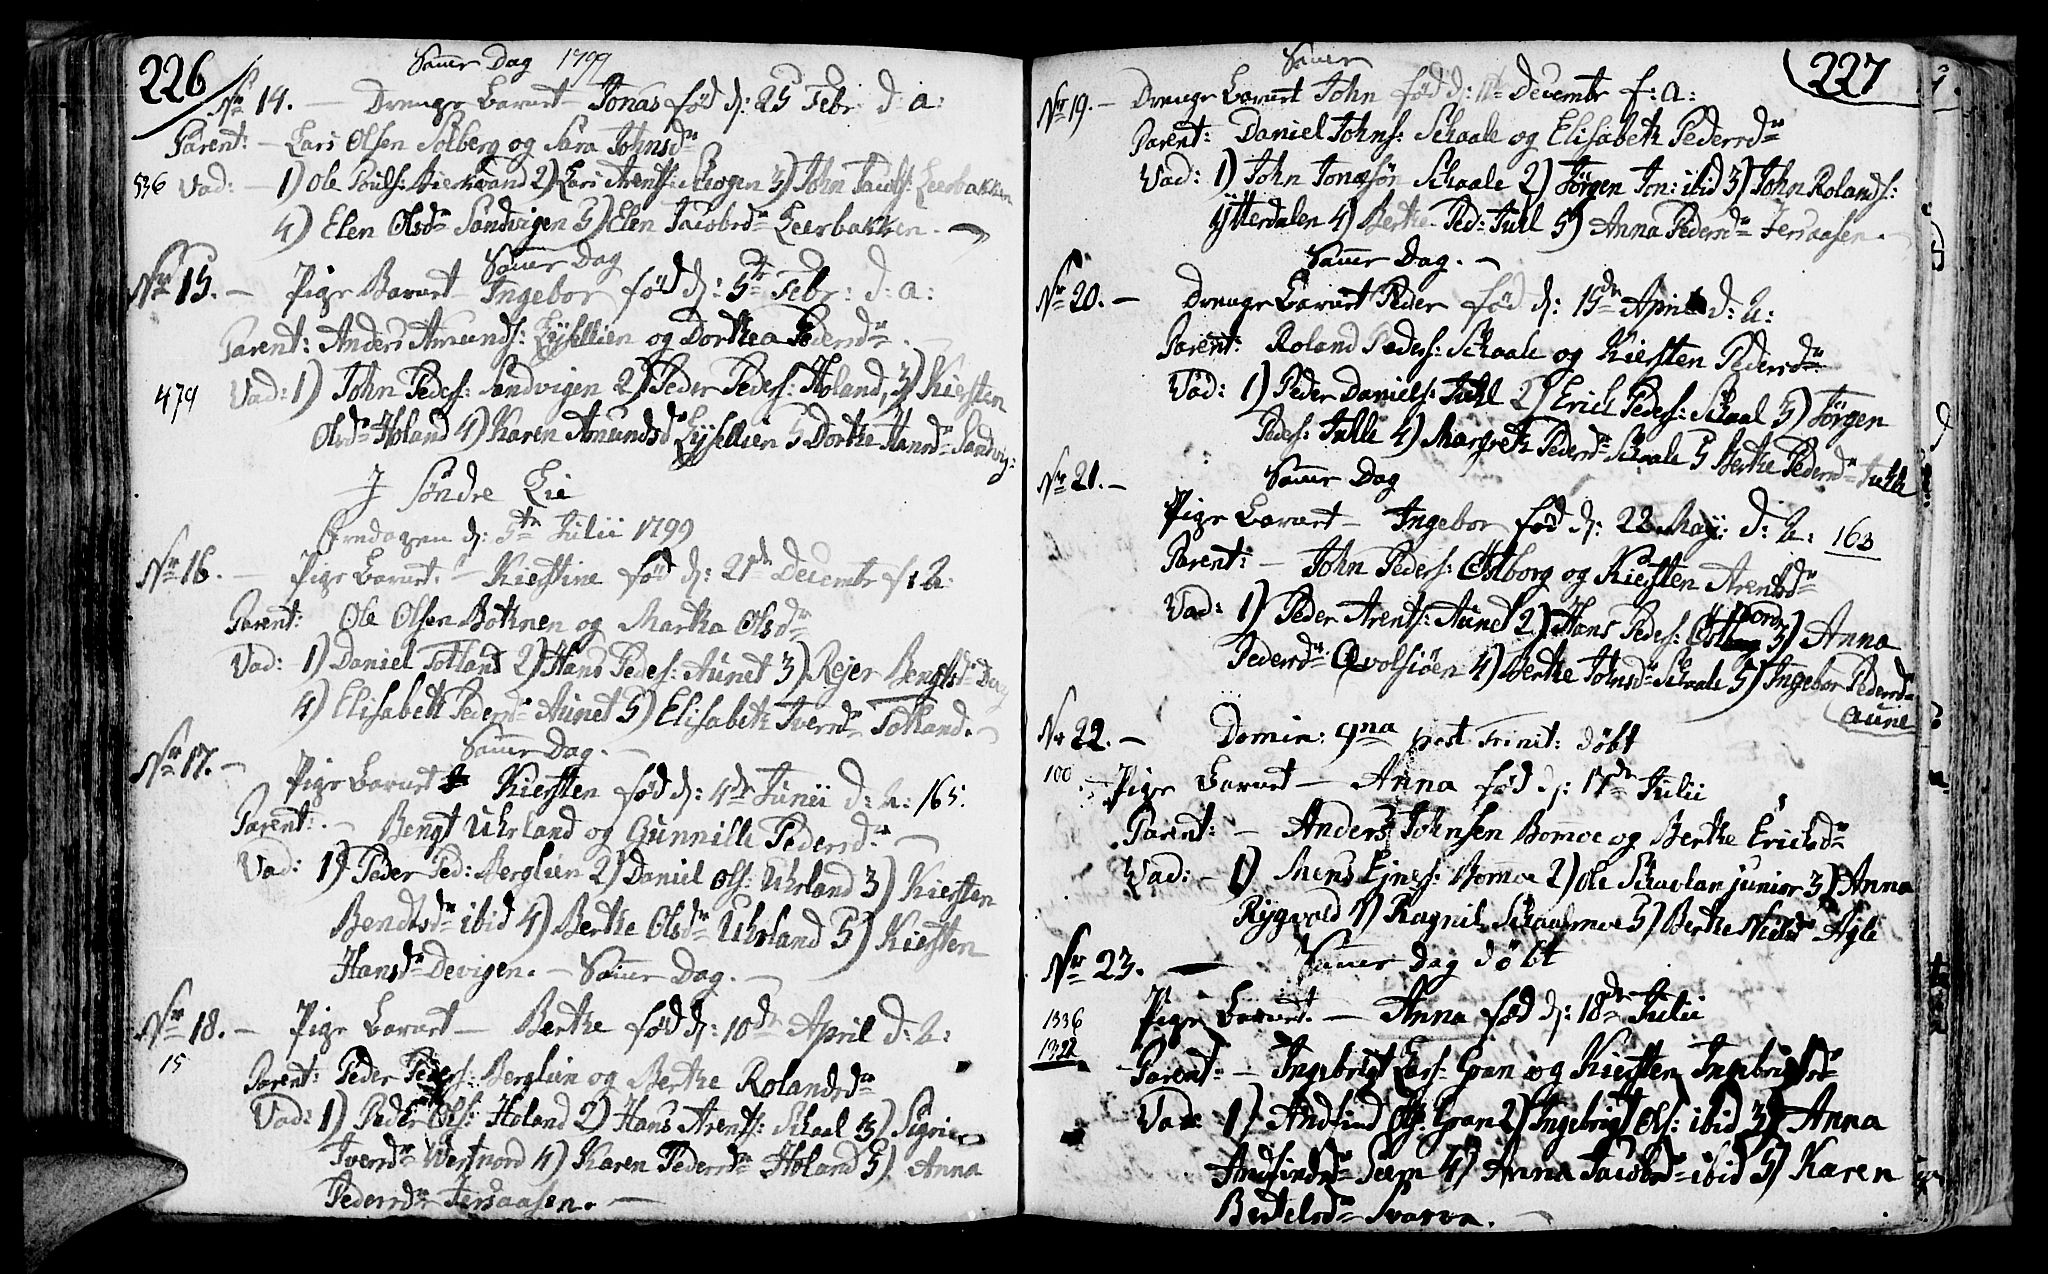 226
Samr Dag 1799
No 14. — Drenge Barnet Jonas fød d: 25 Febr: d: a:
Parent: — Lars Olsen Solberg og Sara Johnsdr
536 Vad: — 1) Ole Pouls: 2) Lars Arents: Skogen 3) John Jacobs: Leerbakken
4) Elen Olsdr Sandvigen 5) Elen Jacobsdr Leerbakken. —
Samr Dag
No 15. — Pige Barnet — Ingebor fød d: 5te Febr: d: a:
Parent: Anders Amunds: Lysellien og Dorthea Pedersdr
479 Vad: 1) John Peders: Sandvigen 2) Peder Peders: Holand, 3) Kiersten
Olsdr Holand 4) Karen Amundsdr Lysellien 5 Dorthe Hansdr Sandvig:
I Søndre Lie
Fredagen d: 5te Julii 1799
No 16. — Pige Barnet. — Kierstine fød d: 21de Decembr f: A:
Parent: Ole Olsen Bothnen og Martha Olsdr
Vad: 1) Daniel Totland 2) Hans Peders: Aunet 3) Rejer Bengtsdr
4) Elisabeth Pedersdr Aunet 5) Elisabeth Iversdr Totland. —
Samr Dag. —
No 17. — Pige Barnet Kiersten fød d: 4de Junii d: A: 165.
Parent: — Bengt Uhrland og Gunnille Pedersdr —
Vad: 1) Peder Ped: Berglien 2) Daniel Ols: Uhrland 3) Kiersten
Bendtsdr ibid 4) Berthe Olsdr Uhrland 5) Kiersten
Hansdr Devigen. — Samr Dag. —
No 18. — Pige Barnet — Berthe fød d: 10de April d: A:
15
Parent: Peder Peders: Berglien og Berthe Rolandsdr
Vad: 1) Peder Ols: Holand 2) Hans Arents: Schaal 3) Sigri
Iversdr Westnord 4) Karen Pedersdr Holand 5) Anna
Pedersdr Jersaasen. —
227
Samr
No 19. — Drenge Barnet John fød d: 11te Decembr f: a:
Parent: Daniel Johns: Schaale og Elisabeth Pedersdr
Vad: 1) John Jonasøn Schaale 2) Jørgen Jon: ibid 3) John Rolands:
Ytterdalen 4) Berthe Ped: Jull 5) Anna Pedersdr Jersaasen. —
Samr Dag. —
No 20. — Drenge Barnet Peder fød d: 15de April d: A:
Parent: Roland Peders: Schaale og Kiersten Pedersdr
Vad: 1) Peder Daniels: Juhl 2) Erich Peders: Schaal 3) Jørgen
Peders: Julle 4) Margreth Pedersdr Schaale 5 Berthe Pedersdr Julle
No 21. — Samr Dag
Pige Barnet — Ingebor fød d: 22 Maji: d: A: 163
Parent: — John Peders: Østborg og Kiersten Arentsdr
Vad: 1) Peder Arents: Aunet 2) Hans Peders: Østborg 3) Anna
Pedersdr Qvolsiøen 4) Berthe Johnsdr Schaale 5) Ingebor Pedersdr
Aune
No 22. — Domin: 9na post Trinit: døbt
100 Pige Barnet — Anna fød d: 17de Julii
Parent: — Anders Johnsen Bomoe og Berthe Erichsdr
Vad: — 1) Mens Ejnes: Bomoe 2) Ole Schavlan junior 3) Anna
Rygvold 4) Ragnil Schaalmoe 5) Berthe Nielsdr Agle
No 23. — Samr Dag døbt
1336 Pige Barnet. — Anna fød d: 18de Julii
1322
Parent: — Ingebrigt Lars: Gran og Kiersten Ingebrigtsdr
Vad: 1) Andfind Ols: Gran 2) Ingebrigt Ols: ibid 3) Anna
Andfindsdr Seem 4) Anna Jacobsdr ibid 5) Karen
Bertelsdr Svarva. —